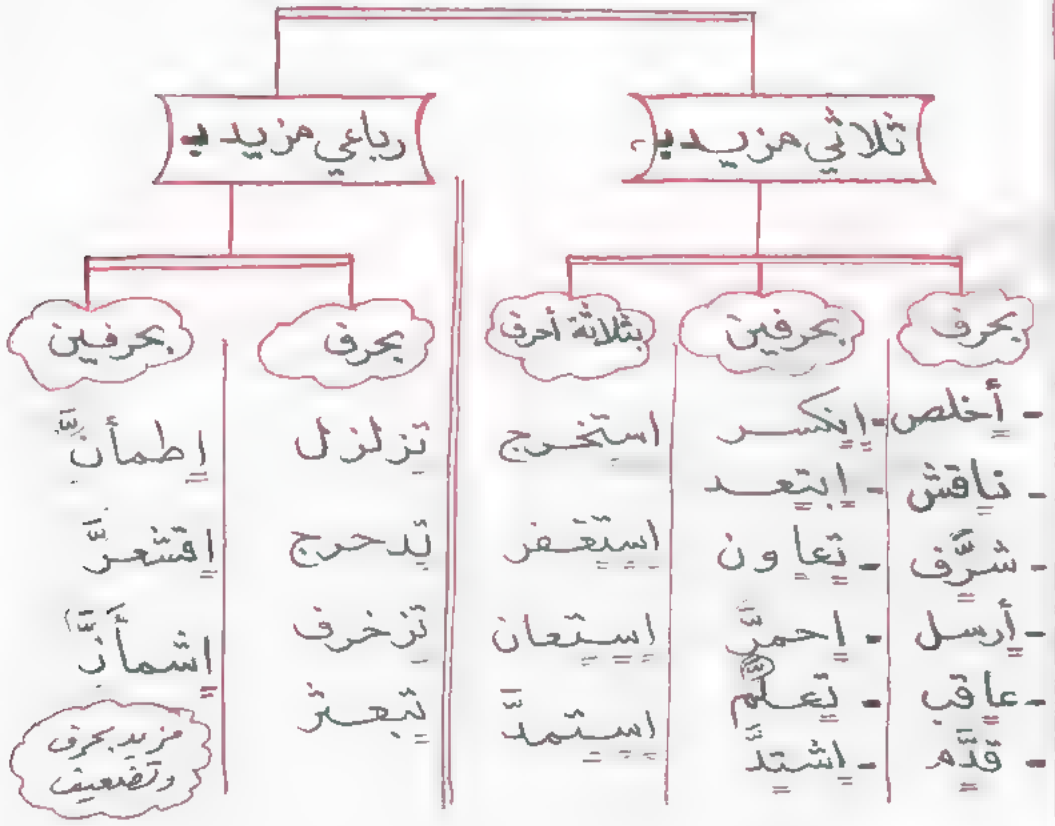 ثلاثي مزيد بـ
رباعي مزيد بـ
بحرف
- أخلص
- ناقش
- شرَّف
- أرسل
- عاقب
- قدَّم
بحرفين
- إنكسر
- ابتعد
- تعاون
- احمرَّ
- تعلَّم
- اشتدَّ
بثلاثة أحرف
استخرج
استغفر
استعان
استمدَّ
بحرف
تزلزل
تدحرج
تزخرف
تبعثر
بحرفين
اطمأنَّ
اقشعرَّ
اشمأزَّ
مزيد بحرف
وتضعيف